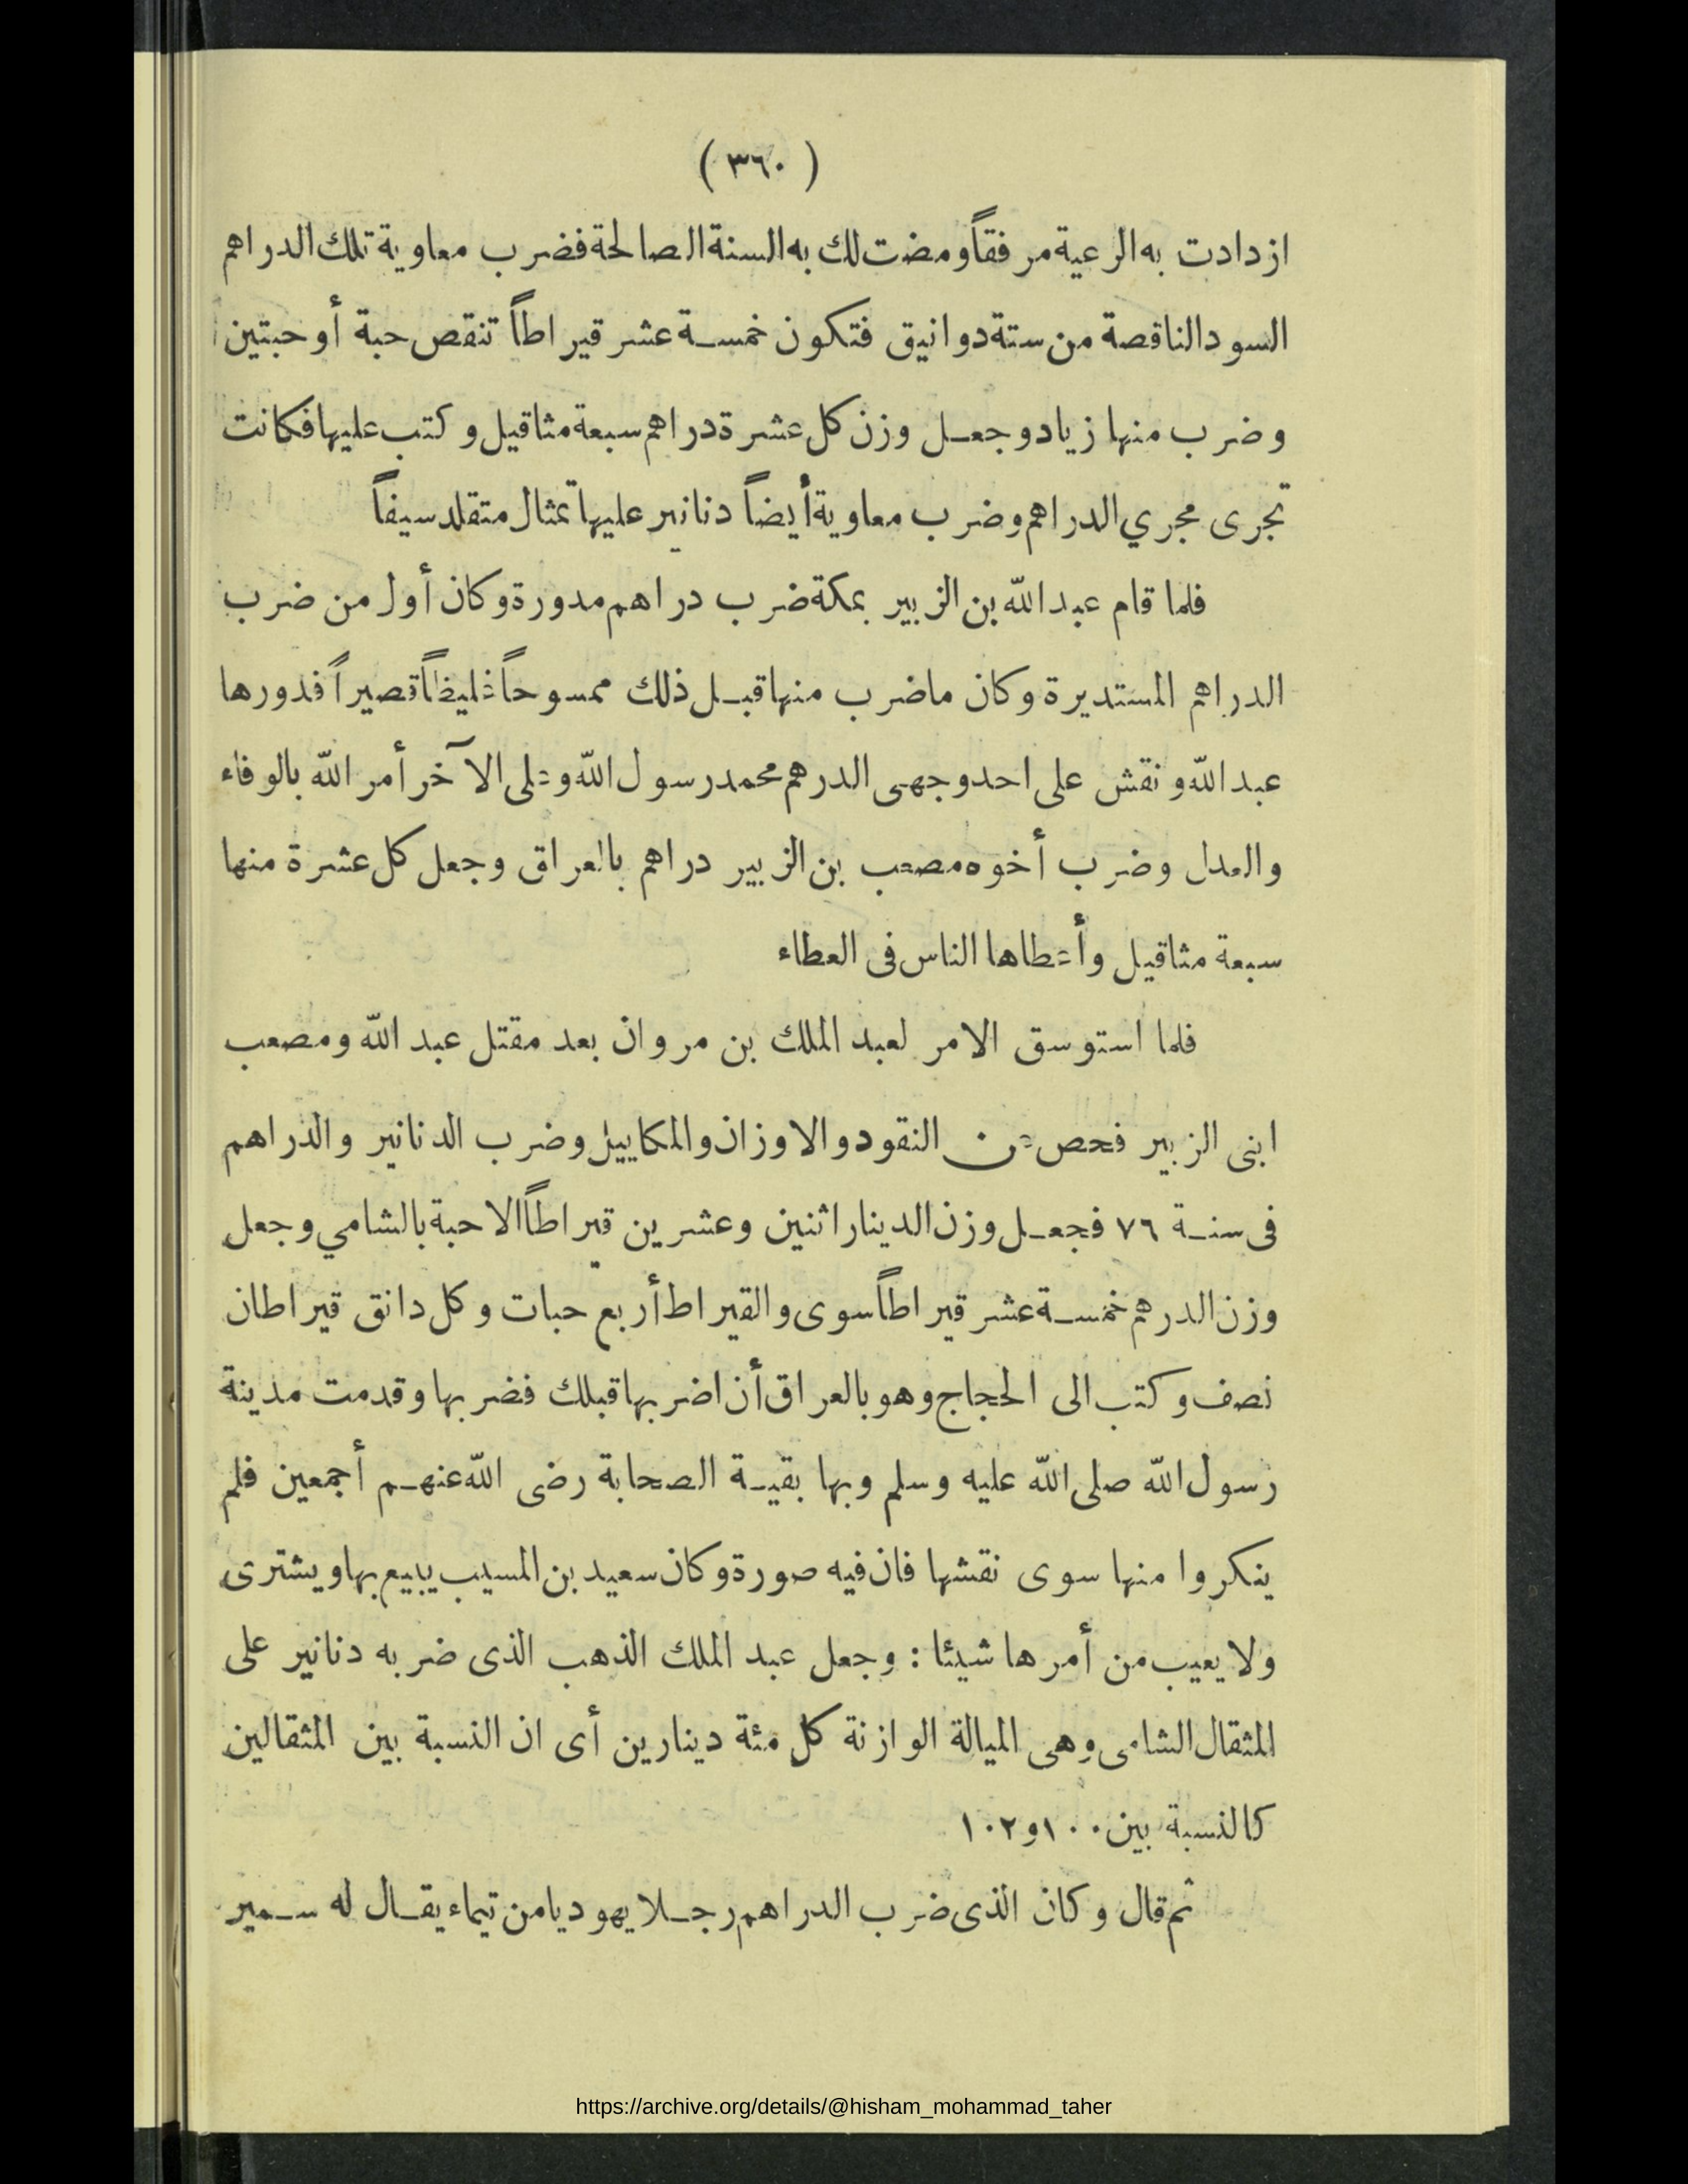 ( ٣٦٠ )
ازدادت به الرعية مرفقاً ومضت لك به السنة الصالحة فضرب معاوية تلك الدراهم
السود الناقصة من ستة دوانيق فتكون خمسة عشر قيراطاً تنقص حبة أو حبتين
وضرب منها زياد وجعل وزن كل عشرة دراهم سبعة مثاقيل وكتب عليها فكانت
تجرى مجري الدراهم وضرب معاوية أيضاً دنانير عليها تمثال متقلد سيفاً
فلما قام عبد الله بن الزبير بمكة ضرب دراهم مدورة وكان أول من ضرب
الدراهم المستديرة وكان ماضرب منها قبل ذلك ممسوحاً غليظاً قصيراً فدورها
عبد الله ونقش على احد وجهى الدرهم محمد رسول الله وعلى الآخر أمر الله بالوفاء
والعدل وضرب أخوه مصعب بن الزبير دراهم بالعراق وجعل كل عشرة منها
سبعة مثاقيل وأعطاها الناس فى العطاء
فلما استوسق الامر لعبد الملك بن مروان بعد مقتل عبد الله ومصعب
ابنى الزبير فحص عن النقود والاوزان والمكاييل وضرب الدنانير والدراهم
فى سنة ٧٦ فجعل وزن الدينار اثنين وعشرين قيراطاً الا حبة بالشامي وجعل
وزن الدرهم خمسة عشر قيراطاً سوى والقيراط أربع حبات وكل دانق قيراطان
نصف وكتب الى الحجاج وهو بالعراق أن اضربها قبلك فضربها وقدمت مدينة
رسول الله صلى الله عليه وسلم وبها بقية الصحابة رضى الله عنهم أجمعين فلم
ينكروا منها سوى نقشها فان فيه صورة وكان سعيد بن المسيب يبيع بها ويشترى
ولا يعيب من أمرها شيئا : وجعل عبد الملك الذهب الذى ضربه دنانير على
المثقال الشامى وهى الميالة الوازنة كل مئة دينارين أى ان النسبة بين المثقالين
كالنسبة بين ١٠٠ و ١٠٢
ثم قال وكان الذى ضرب الدراهم رجلا يهوديا من تيماء يقال له سمير
https://archive.org/details/@hisham_mohammad_taher